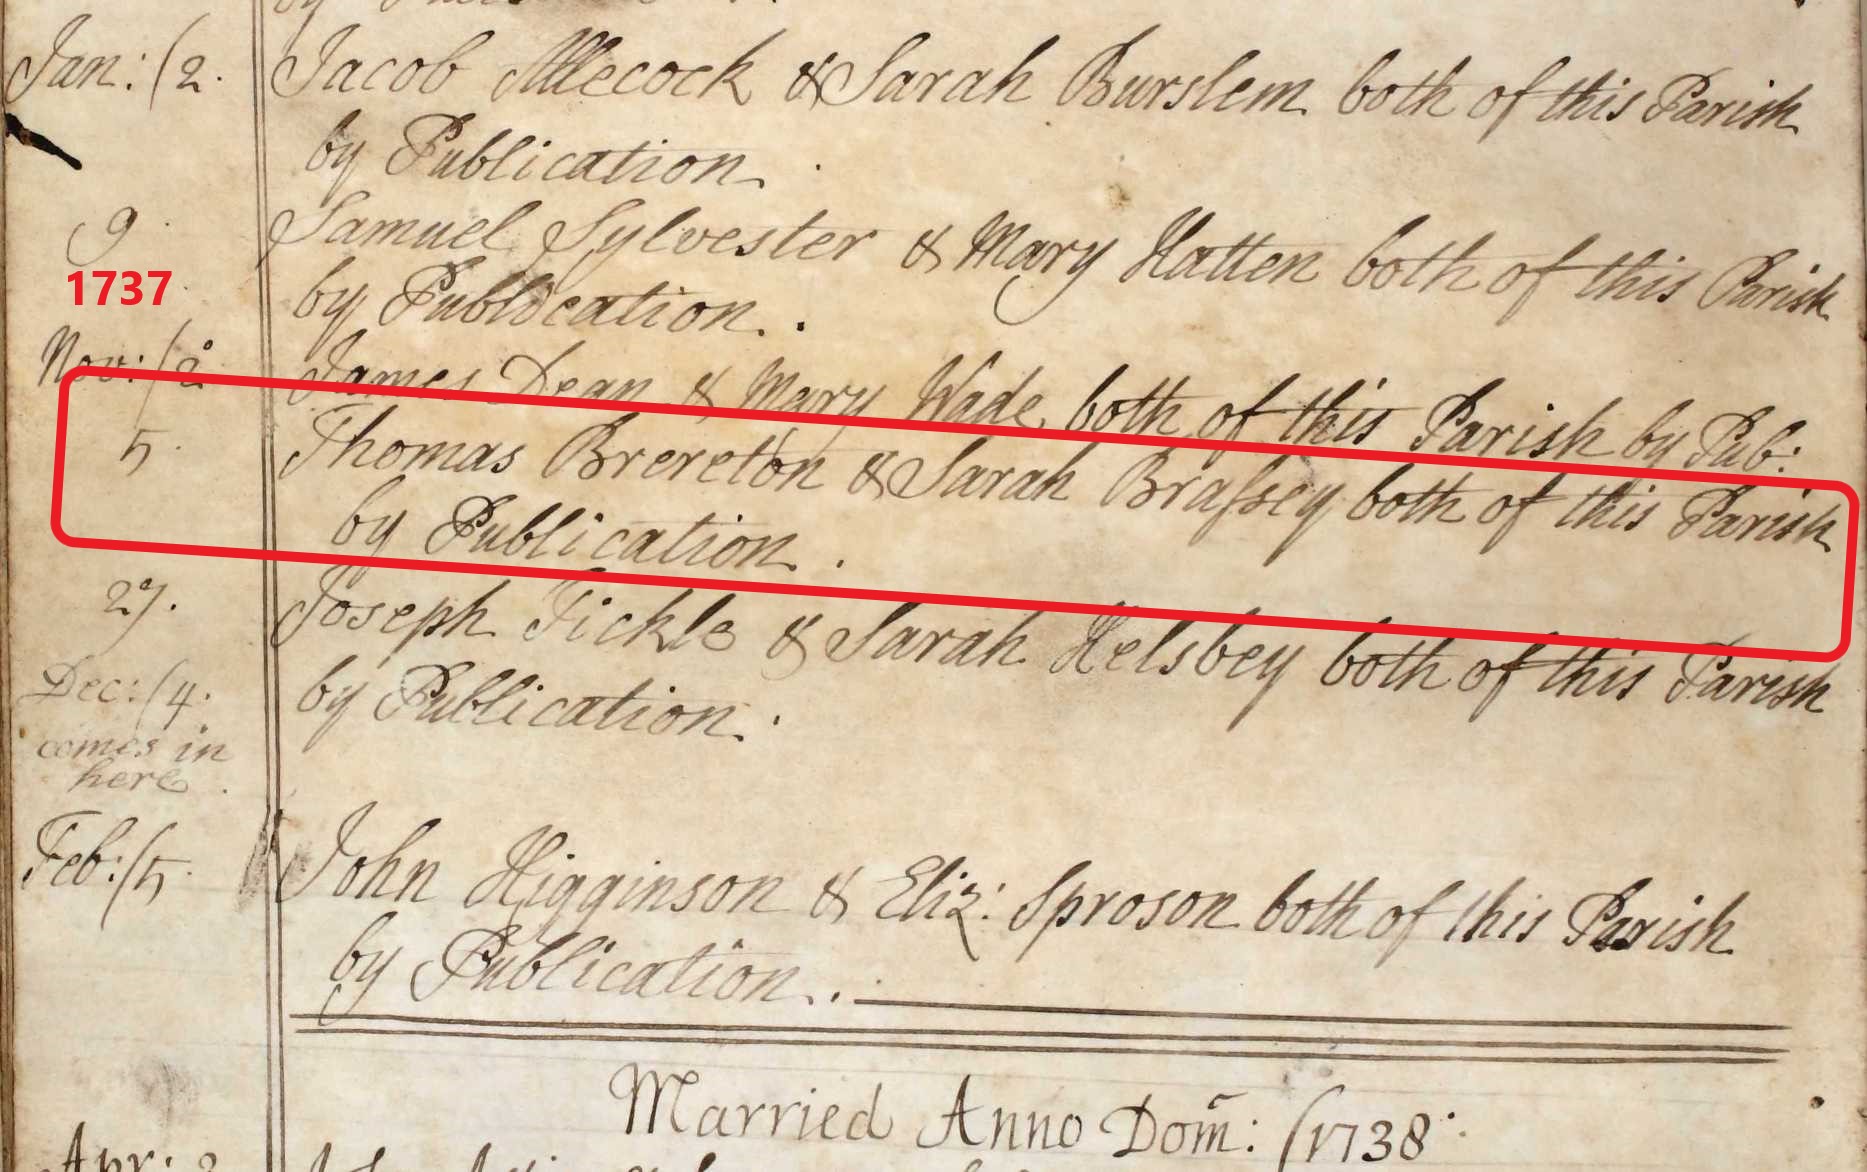 Jan: (2. Jacob Allecock & Sarah Burslem both of this Parish
by Publication.
9. Samuel Sylvester & Mary Hatten both of this Parish
by Publication.
1737
Nov: (2 James Dean & Mary Wade both of this Parish by Pub:
5. Thomas Brereton & Sarah Braſsey both of this Parish
by Publication.
27. Joseph Fickle & Sarah Helsbey both of this Parish
by Publication.
Dec: (4.
comes in
here.
Feb: (5. John Higginson & Eliz: Sproson both of this Parish
by Publication.
Married Anno Dom̃: (1738
Apr: